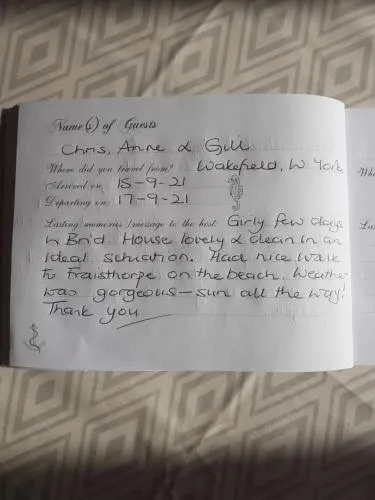 Name(s) of Guests
Chris, Anne & Gill
Where did you travel from? Wakefield, W. York
Arrived on: 15-9-21
Departing on: 17-9-21
Lasting memories/message to the host: Girly few days
in Brid. House lovely & clean in an
ideal situation. Had nice walk
to Fraisthorpe on the beach. Weather
was gorgeous - sun all the way!
Thank you